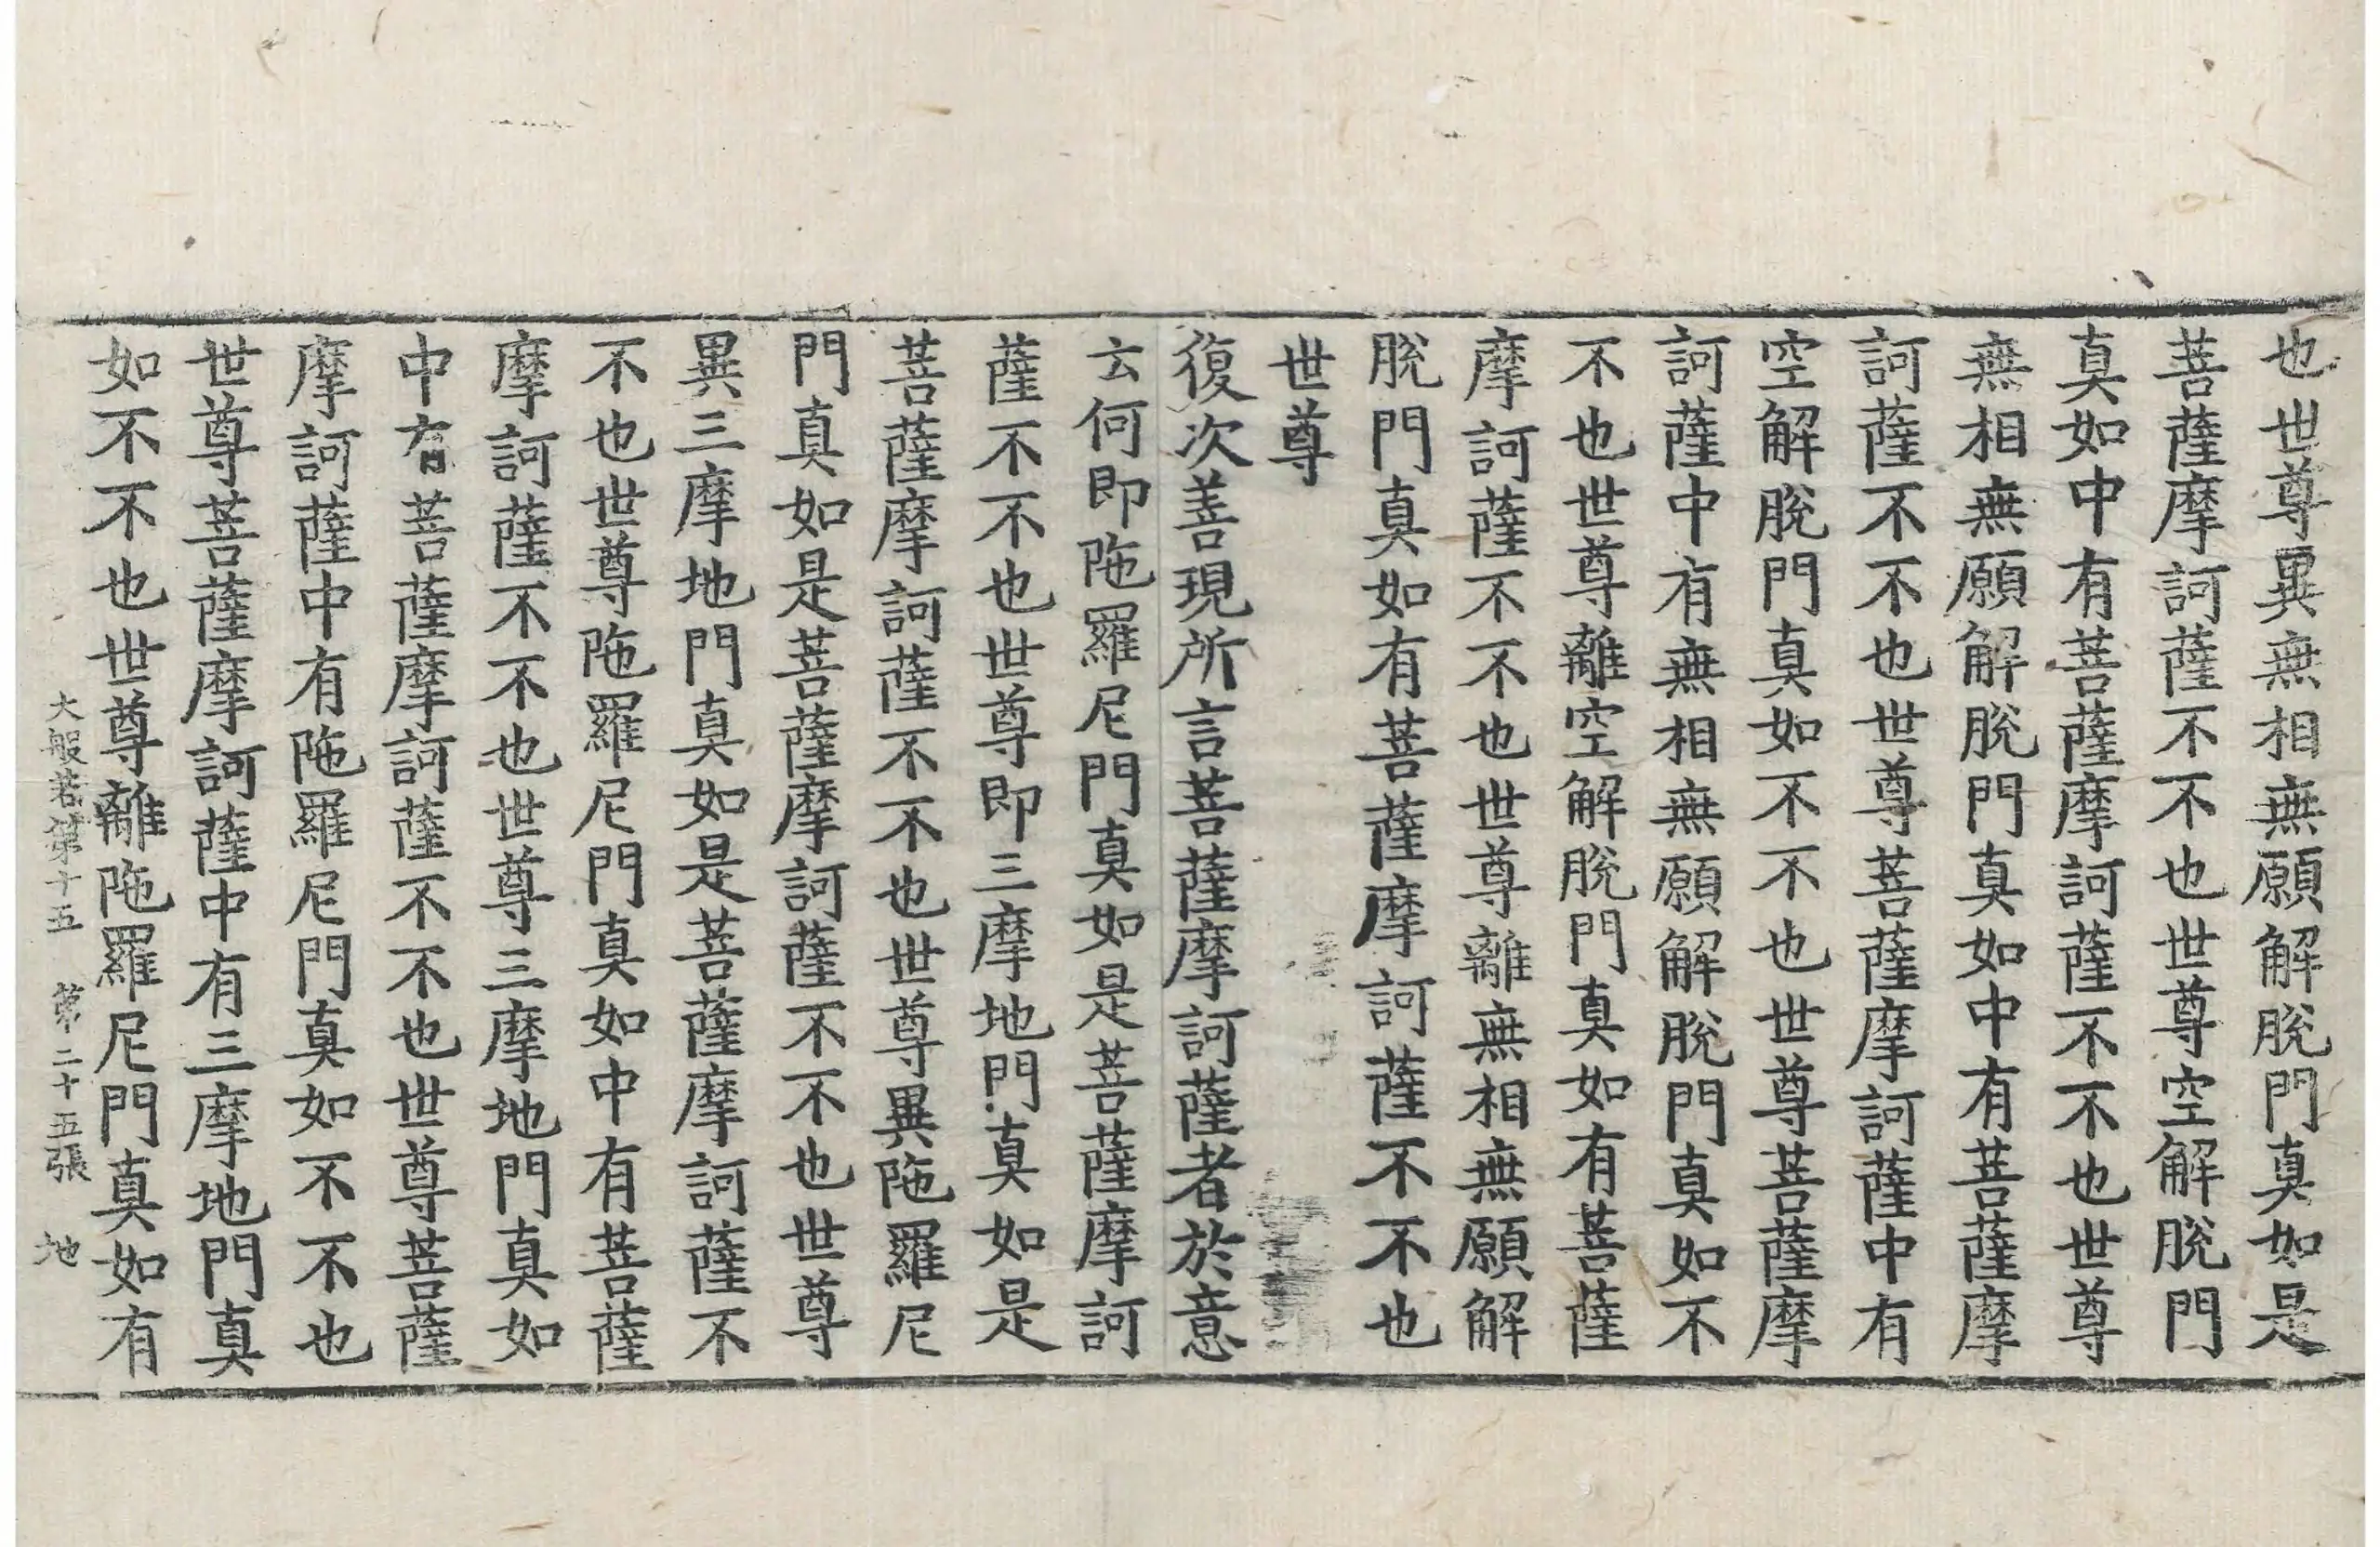 也世尊異無相無願解脫門真如是
菩薩摩訶薩不不也世尊空解脫門
真如中有菩薩摩訶薩不不也世尊
無相無願解脫門真如中有菩薩摩
訶薩不不也世尊菩薩摩訶薩中有
空解脫門真如不不也世尊菩薩摩
訶薩中有無相無願解脫門真如不
不也世尊離空解脫門真如有菩薩
摩訶薩不不也世尊離無相無願解
脫門真如有菩薩摩訶薩不不也
世尊
復次善現所言菩薩摩訶薩者於意
云何即陁羅尼門真如是菩薩摩訶
薩不不也世尊即三摩地門真如是
菩薩摩訶薩不不也世尊異陁羅尼
門真如是菩薩摩訶薩不不也世尊
異三摩地門真如是菩薩摩訶薩不
不也世尊陁羅尼門真如中有菩薩
摩訶薩不不也世尊三摩地門真如
中有菩薩摩訶薩不不也世尊菩薩
摩訶薩中有陁羅尼門真如不不也
世尊菩薩摩訶薩中有三摩地門真
如不不也世尊離陁羅尼門真如有
大般若第十五 第二十五張 地